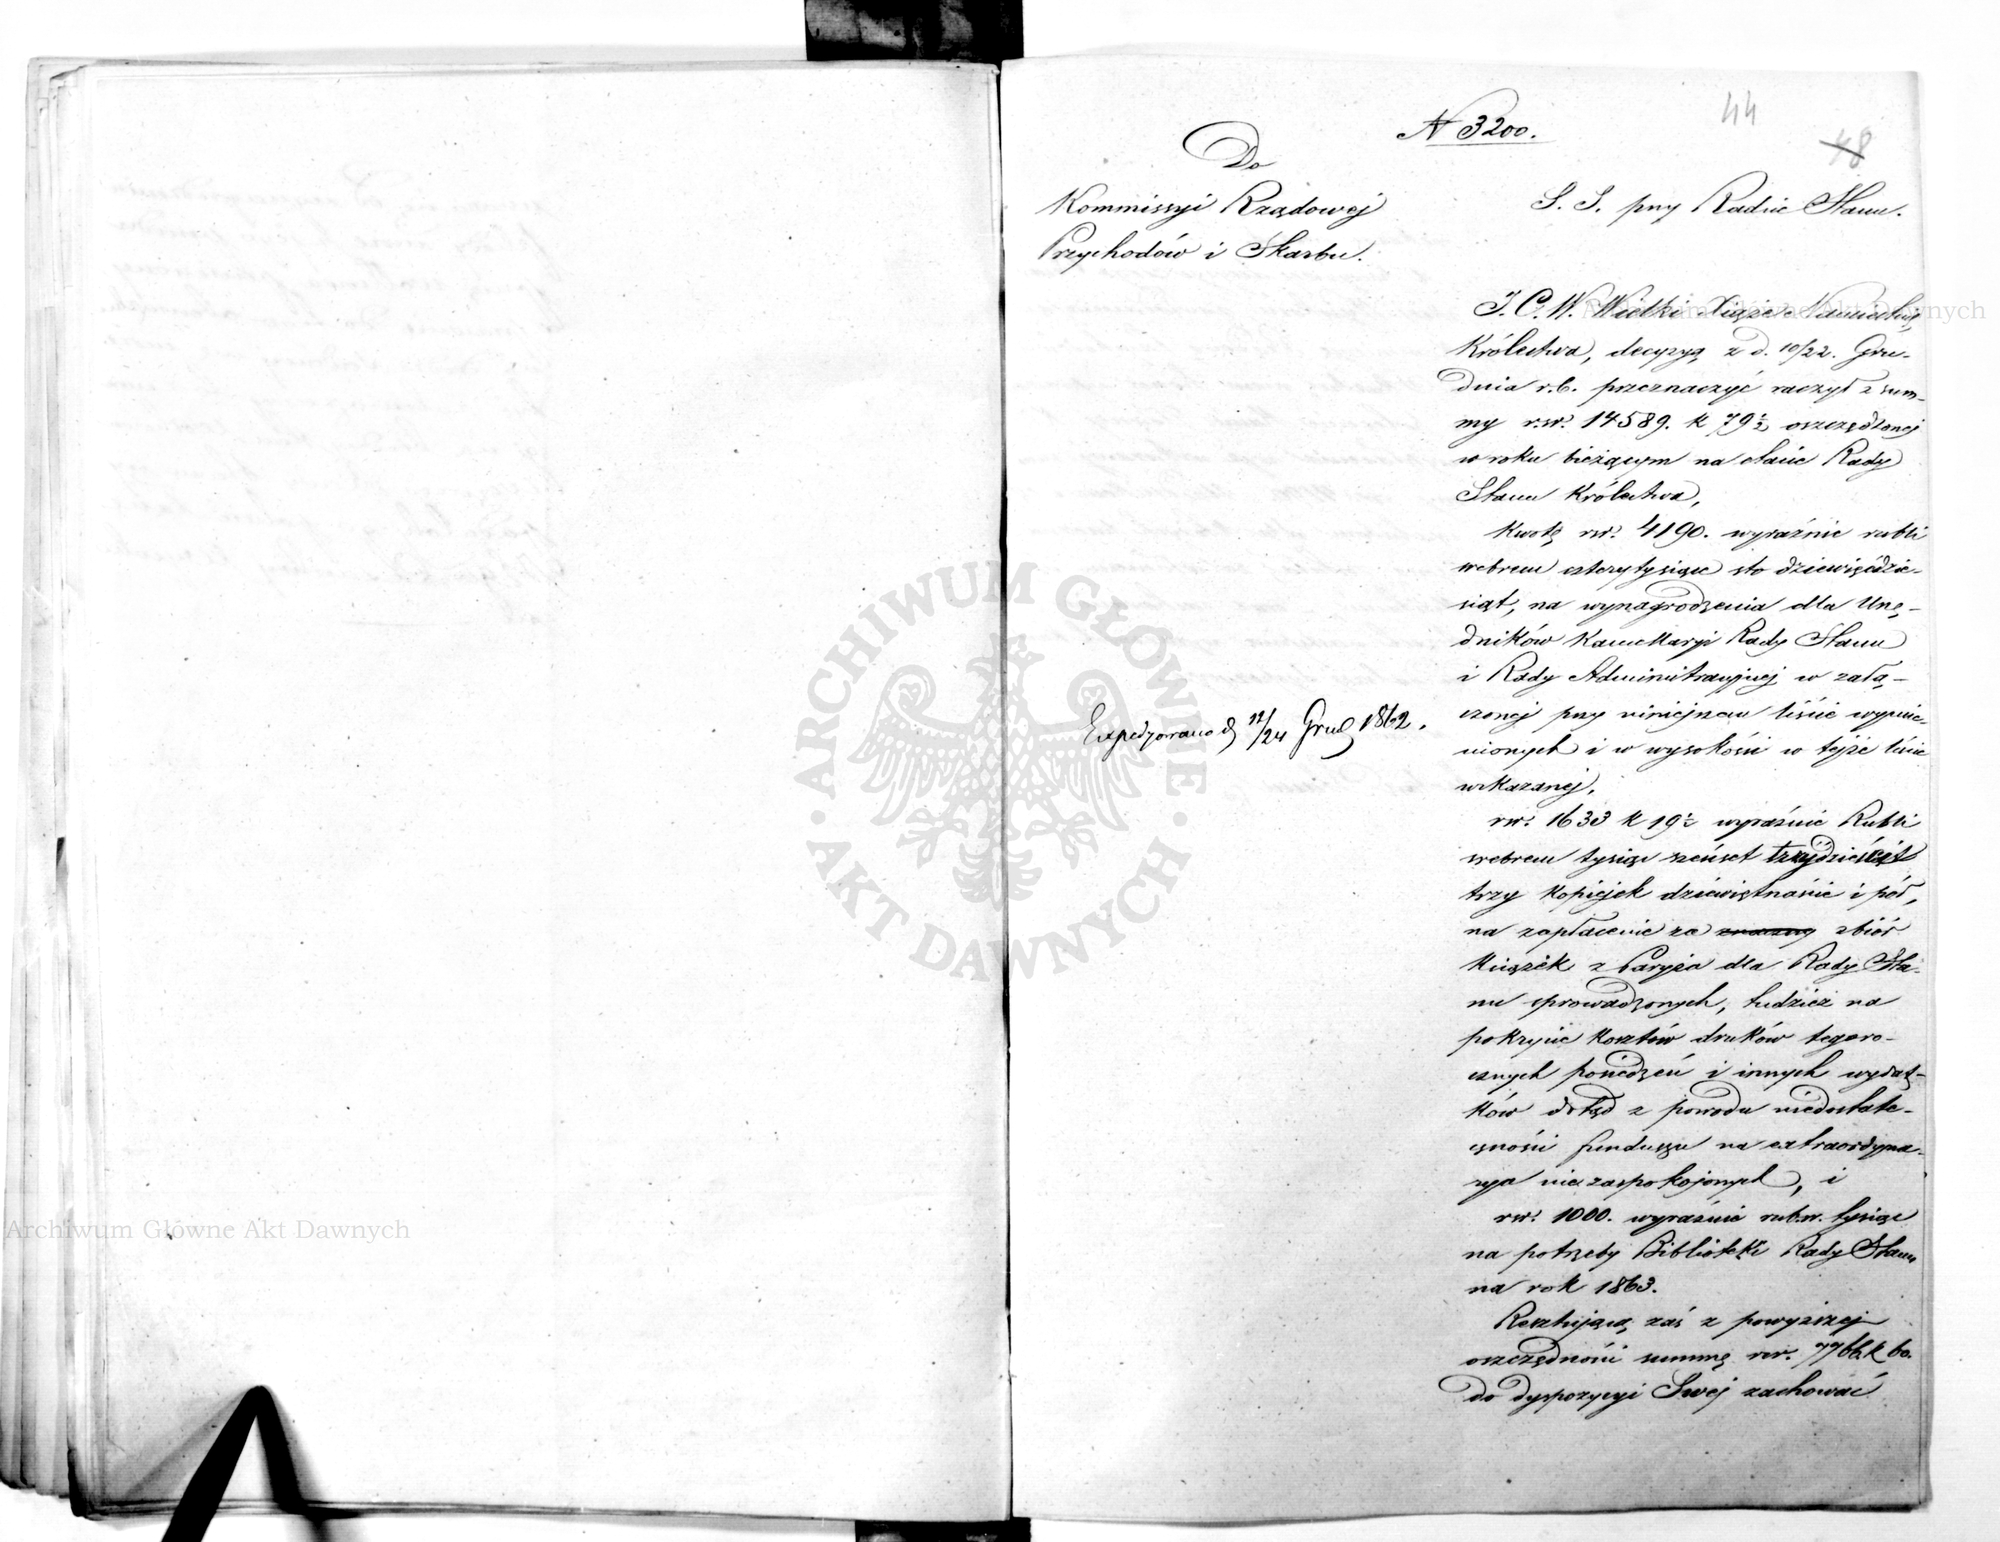 44
48
N 3200.
Do
Kommissyi Rządowej
Przychodów i Skarbu.
S. S. przy Radzie Stanu.
J. C. W. Wielki Xiąże Namiestnik
Królestwa, decyzyą z d. 10/22. Gru-
dnia r.b. przeznaczyć raczył z sum-
my rsr. 14589. k 79½ oszczędzonej
w roku bieżącym na etacie Rady
Stanu Królestwa,
Kwotę rsr. 4190. wyraźnie rubli
srebrem cztery tysiące sto dziewięćdzie-
siąt, na wynagrodzenia dla Urzę-
dników Kancellaryi Rady Stanu
i Rady Administracyjnej w załą-
czonej przy niniejszem liście wymie-
nionych i w wysokości w tejże liście
wskazanej,
rsr. 1633 k 19½ wyraźnie Rubli
srebrem tysiąc sześset trzydzieści
trzy kopiejek dziewiętnaście i pół,
na zapłacenie za znaczny zbiór
książek z Paryża dla Rady Sta-
nu sprowadzonych, tudzież na
pokrycie kosztów druków tegoro-
cznych posiedzeń i innych wydat-
ków dotąd z powodu niedostate-
czności funduszu na extraordyna-
rya niezaspokojonych, i
rsr. 1000. wyraźnie rub.sr. tysiąc
na potrzeby Biblioteki Rady Stanu
na rok 1863.
Resztującą zaś z powyższej
oszczędności summę rsr. 7766. k 60.
do dyspozycyi Swej zachować
Expedyowano d 12/24 Grud 1862.
ARCHIWUM GŁÓWNE AKT DAWNYCH
Archiwum Główne Akt Dawnych
Archiwum Główne Akt Dawnych